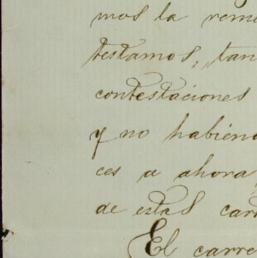 mos la remi
testamos, tan
contestaciones
y no habiend
ces a ahora,
de estas cart
El carre